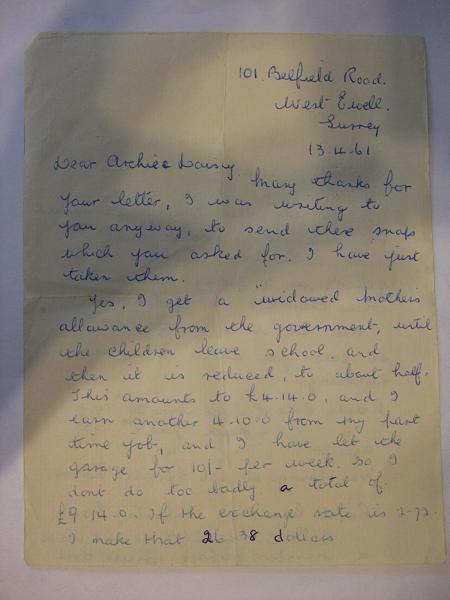 101 Belfield Road.
West Ewell.
Surrey
13.4.61
Dear Archie & Daisy.
Many thanks for
your letter, I was writing to
you anyway, to send these snaps
which you asked for. I have just
taken them.
Yes, I get a "widowed mothers
allowance from the government, until
the children leave school, and
then it is reduced, to about half.
This amounts to £4.14.0. and I
earn another 4.10.0 from my part
time job, and I have let the
garage for 10/- per week. So I
dont do too badly a total of
£9.14.0. If the exchange rate is 2-72
I make that 26.38 dollars